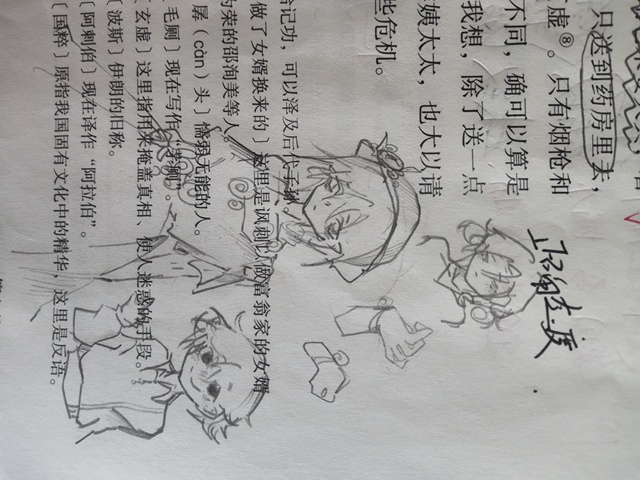 只送到药房里去，
虚⑧。只有烟枪和
不同，确可以算是
我想，除了送一点
姨太太，也大以请
些危机。
记功，可以泽及后代子孙。
做了女婿换来的〕这里是讽刺以做富翁家的女婿
为荣的邵洵美等人。
孱（càn）头〕懦弱无能的人。
毛厕〕现在写作“茅厕”。
〔玄虚〕这里指用来掩盖真相、使人迷惑的手段。
〔波斯〕伊朗的旧称。
〔阿剌伯〕现在译作“阿拉伯”。
〔国粹〕原指我国固有文化中的精华，这里是反语。